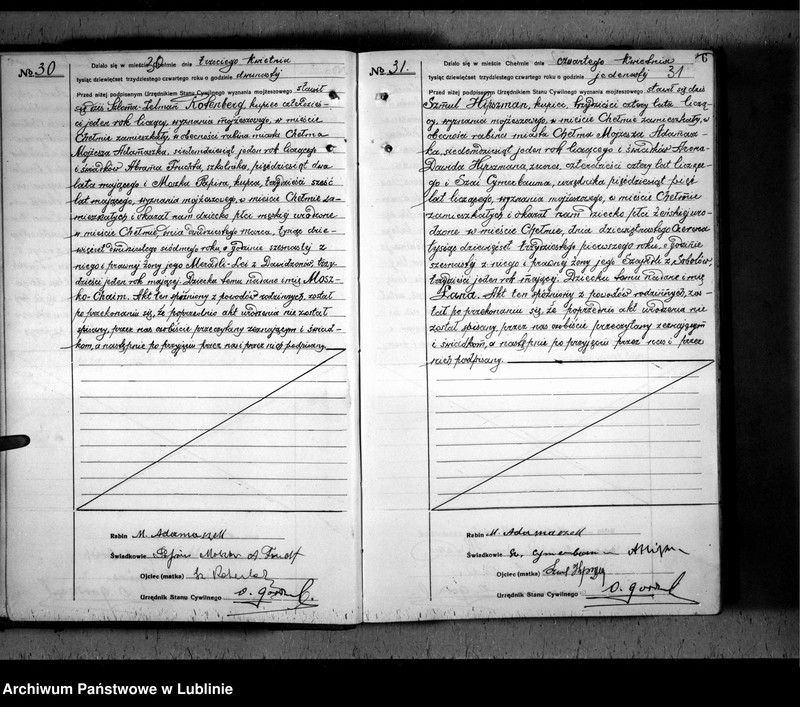 No 30
Działo się w mieście Chełmie dnia trzeciego kwietnia
30
tysiąc dziewięćset trzydziestego czwartego roku o godzinie dwunastej
Przed niżej podpisanym Urzędnikiem Stanu Cywilnego wyznania mojżeszowego stawił
się dziś Szloma-Zelman Rotenberg, kupiec czterdzieś-
ci jeden rok liczący, wyznania mojżeszowego, w mieście
Chełmie zamieszkały, w obecności rabina miasta Chełma
Mojżesza Adamaszka, siedemdziesiąt jeden rok liczącego
i świadków Abrama Fruchta, szkolnika, pięćdziesiąt dwa
lata mającego i Moszka Papira, kupca, trzydzieści sześć
lat mającego, wyznania mojżeszowego, w mieście Chełmie za-
mieszkałych i okazał nam dziecko płci męskiej urodzone
w mieście Chełmie, dnia dwudziestego marca, tysiąc dzie-
więćset dwudziestego siódmego roku, o godzinie szesnastej z
niego i prawnej żony jego Meradli-Lei z Dawidzonów, trzy-
dzieści jeden rok mającej. Dziecku temu nadano imię Mosz-
ko-Chaim. Akt ten spóźniony z powodów rodzinnych, został
po przekonaniu się, że poprzednio akt urodzenia nie został
spisany, przez nas osobiście przeczytany zeznającym i świad-
kom, a następnie po przyjęciu przez nas i przez nich podpisany.
Rabin M. Adamaszek
Świadkowie Papir Moszko A. Frucht
Ojciec (matka)
Urzędnik Stanu Cywilnego
No 31.
6
Działo się w mieście Chełmie dnia czwartego kwietnia
tysiąc dziewięćset trzydziestego czwartego roku o godzinie jedenastej 31
Przed niżej podpisanym Urzędnikiem Stanu Cywilnego wyznania mojżeszowego stawił się dziś
Szmul Hipszman, kupiec, trzydzieści cztery lata liczą-
cy, wyznania mojżeszowego, w mieście Chełmie zamieszkały, w
obecności rabina miasta Chełma Mojżesza Adamasz-
ka, siedemdziesiąt jeden rok liczącego i świadków Arona-
Dawida Hipszmana, kupca, czterdzieści cztery lat liczące-
go i Szai Cymerbauma, urzędnika pięćdziesiąt pięć
lat liczącego, wyznania mojżeszowego, w mieście Chełmie
zamieszkałych i okazał nam dziecko płci żeńskiej uro-
dzone w mieście Chełmie, dnia dziewiątego czerwca
tysiąc dziewięćset trzydziestego pierwszego roku, o godzinie
szesnastej z niego i prawnej żony jego z Sobolów,
trzydzieści jeden rok mającej. Dziecku temu nadano imię
Łania. Akt ten spóźniony z powodów rodzinnych, zos-
tał po przekonaniu się, że poprzednio akt urodzenia nie
został spisany, przez nas osobiście przeczytany zeznającym
i świadkom, a następnie po przyjęciu przez nas i przez
nich podpisany.
Rabin M. Adamaszek
Świadkowie Sz. Cymerbaum
Ojciec (matka) Szmul
Urzędnik Stanu Cywilnego
Archiwum Państwowe w Lublinie